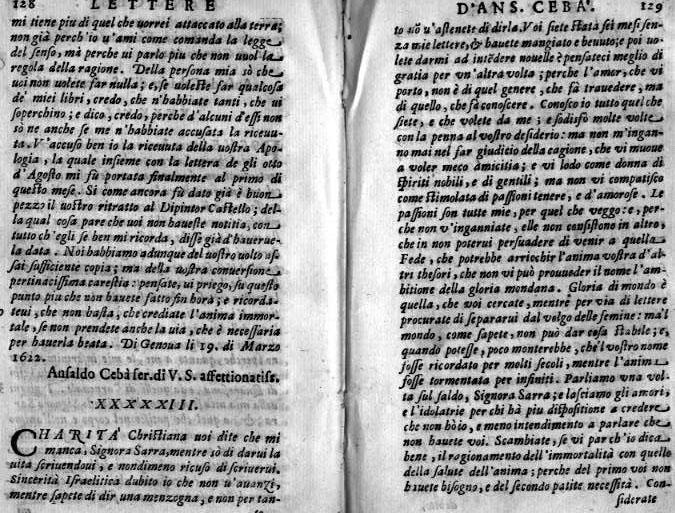 128 LETTERE
mi tiene piu di quel che uorrei attaccato alla terra;
non già perch'io u'ami come comanda la legge
del senso, mà perche ui parlo piu che non uuol la
regola della ragione. Della persona mia sò che
uoi non uolete far nulla; e, se uoleste far qualcosa
de' miei libri, credo, che n'habbiate tanti, che ui
soperchino; e dico, credo, perchè d'alcuni d'essi non
sò ne anche se me n'habbiate accusata la riceuu-
ta. V'accuso ben io la riceunta della uostra Apo-
logia, la quale insieme con la lettera de gli otto
d'Agosto mi fù portata finalmente al primo di
questo mese. Si come ancora fù dato già è buon
pezzo il uostro ritratto al Dipintor Castello; del-
la qual cosa pare che uoi non haueste notitia, con
tutto ch'egli se ben mi ricorda, disse già d'hauerue-
la data. Noi habbiamo adunque del uostro uolto as-
sai sufficiente copia; ma della uostra conuersione
pertinacissima carestia: pensate, ui priego, sù questo
punto piu che non hauete fatto fin hora; e ricorda-
teui, che non basta, che crediate l'anima immor-
tale, se non prendete anche la uia, che è necessaria
per hauerla beata. Di Genoua li 19. di Marzo
1622.
Ansaldo Cebà ser. di V. S. affettionatiss.
XXXXXIII.
CHARITÀ Christiana uoi dite che mi
manca, Signora Sarra, mentre sò di darui la
uita scriuendoui, e nondimeno ricuso di scriuerui.
Sincerità Israelitica dubito io che non u'auanzi,
mentre sapete di dir una menzogna, e non per tan-
to
D'ANS. CEBÀ. 129
to nō u'astenete di dirla. Voi siete stata sei mesi sen-
za mie lettere, & hauete mangiato e beuuto; e poi uo-
lete darmi ad intēdere nouelle è pensateci meglio di
gratia per un'altra volta; perche l'amor, che vi
porto, non è di quel genere, che fà trauedere, ma
di quello, che fà conoscere. Conosco io tutto quel che
siete, e che volete da me; e sodisfò molte volte
con la penna al vostro desiderio: ma non m'ingan-
no mai nel far giudicio della cagione, che vi muoue
a voler meco amicitia; e vi lodo come donna di
spiriti nobili, e di gentili; ma non vi compatisco
come stimolata di passioni tenere, e d'amorose. Le
passioni son tutte mie, per quel che veggo: e, per-
che non v'inganniate, elle non consistono in altro,
che in non poterui persuadere di venir a quella
Fede, che potrebbe arricchir l'anima vostra d'al-
tri thesori, che non vi può prouueder il nome l'am-
bitione della gloria mondana. Gloria di mondo è
quella, che voi cercate, mentre per via di lettere
procurate di separarui dal volgo delle femine: ma'l
mondo, come sapete, non può dar cosa stabile; e,
quando potesse, poco monterebbe, che'l vostro nome
fosse ricordato per molti secoli, mentre l'anima
fosse tormentata per infiniti. Parliamo una vol-
ta sul saldo, Signora Sarra; e lasciamo gli amori,
e l'idolatrie per chi hà piu dispositione a credere
che non hò io, e meno intendimento a parlare che
non hauete voi. Scambiate, se vi par ch'io dica
bene, il ragionamento dell'immortalità con quello
della salute dell'anima; perche del primo voi non
hauete bisogno, e del secondo patite necessità. Con-
siderate